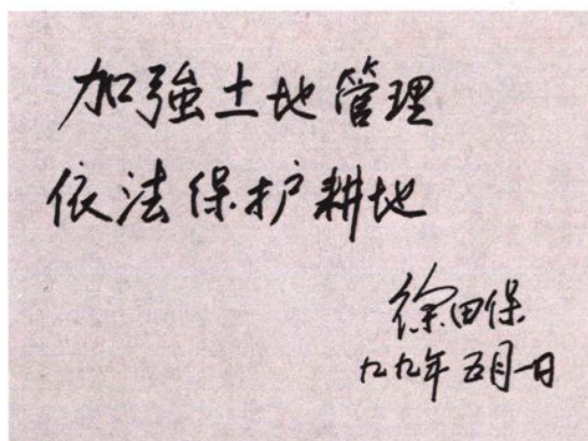 加強土地管理
依法保护耕地
徐田保
九九年五月一日